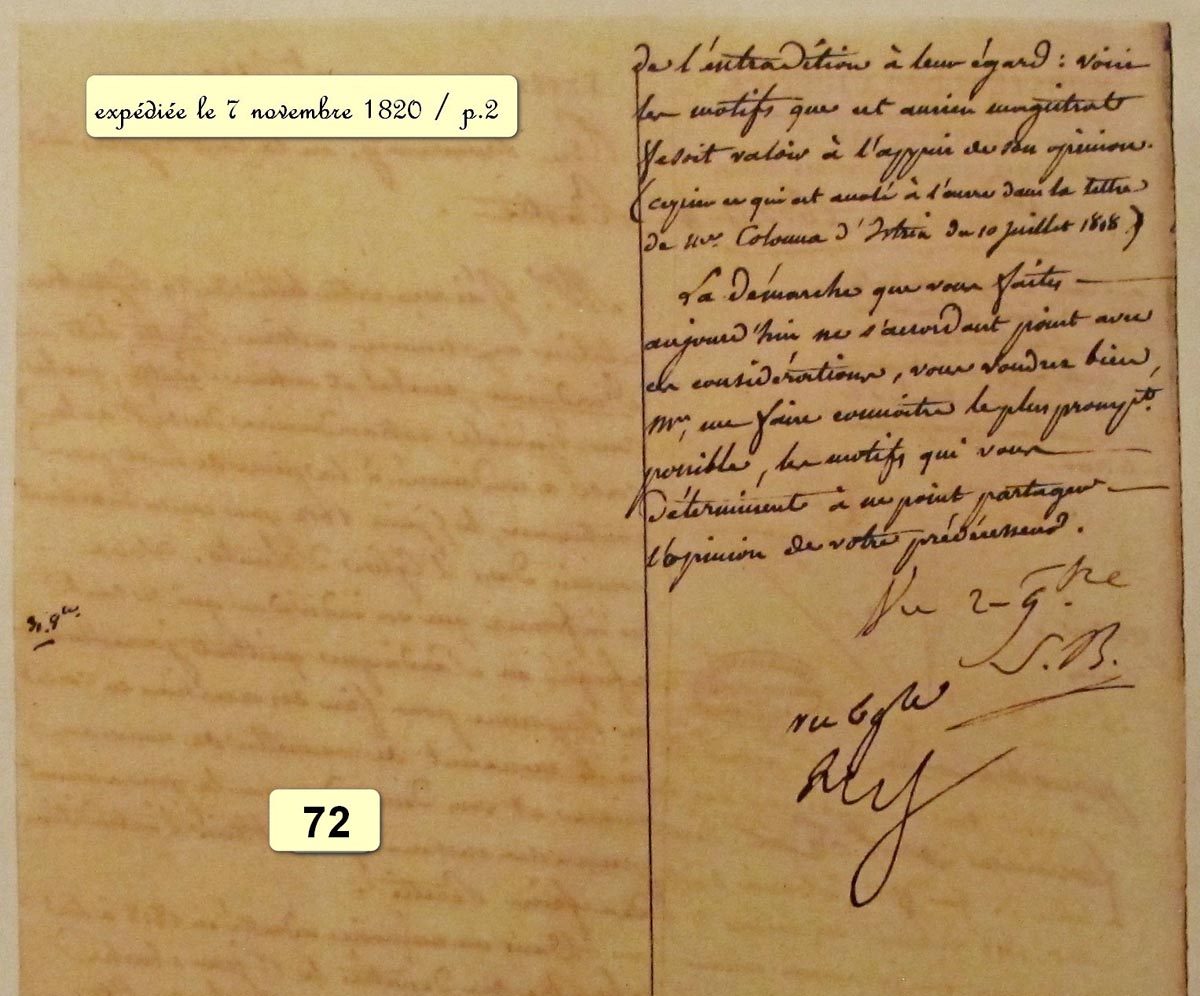 expédiée le 7 novembre 1820 / p.2
de l'extradition à leur égard : voici
les motifs que cet ancien magistrat
fesoit valoir à l'appui de son opinion.
(copier ce qui est anolé à l'encre dans la lettre
de Mr. Colonna d'Istria du 10 juillet 1818)
La démarche que vous faites
aujourd'hui ne s'accordant point avec
ces considérations, vous voudrez bien,
Mr, me faire connoitre le plus prompt.t
possible, les motifs qui vous
déterminent à ne point partager
l'opinion de votre prédécesseur.
Vu 2 - 9.bre
S.B.
vu 6 9bre
72